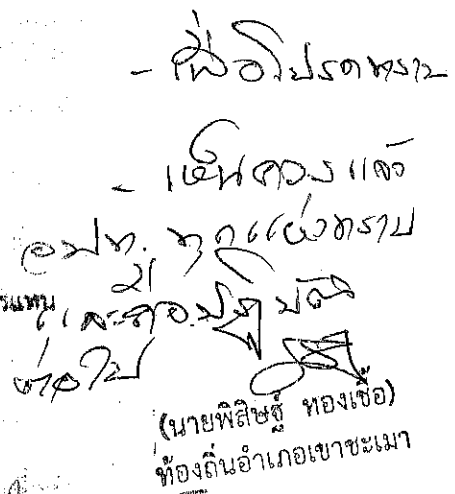 - เพื่อโปรดทราบ
- เห็นควรแจ้ง
อปท. ทุกแห่งทราบ
และถือปฏิบัติ
ต่อไป
(นายพิสิษฐ์ ทองเชื้อ)
ท้องถิ่นอำเภอเขาชะเมา